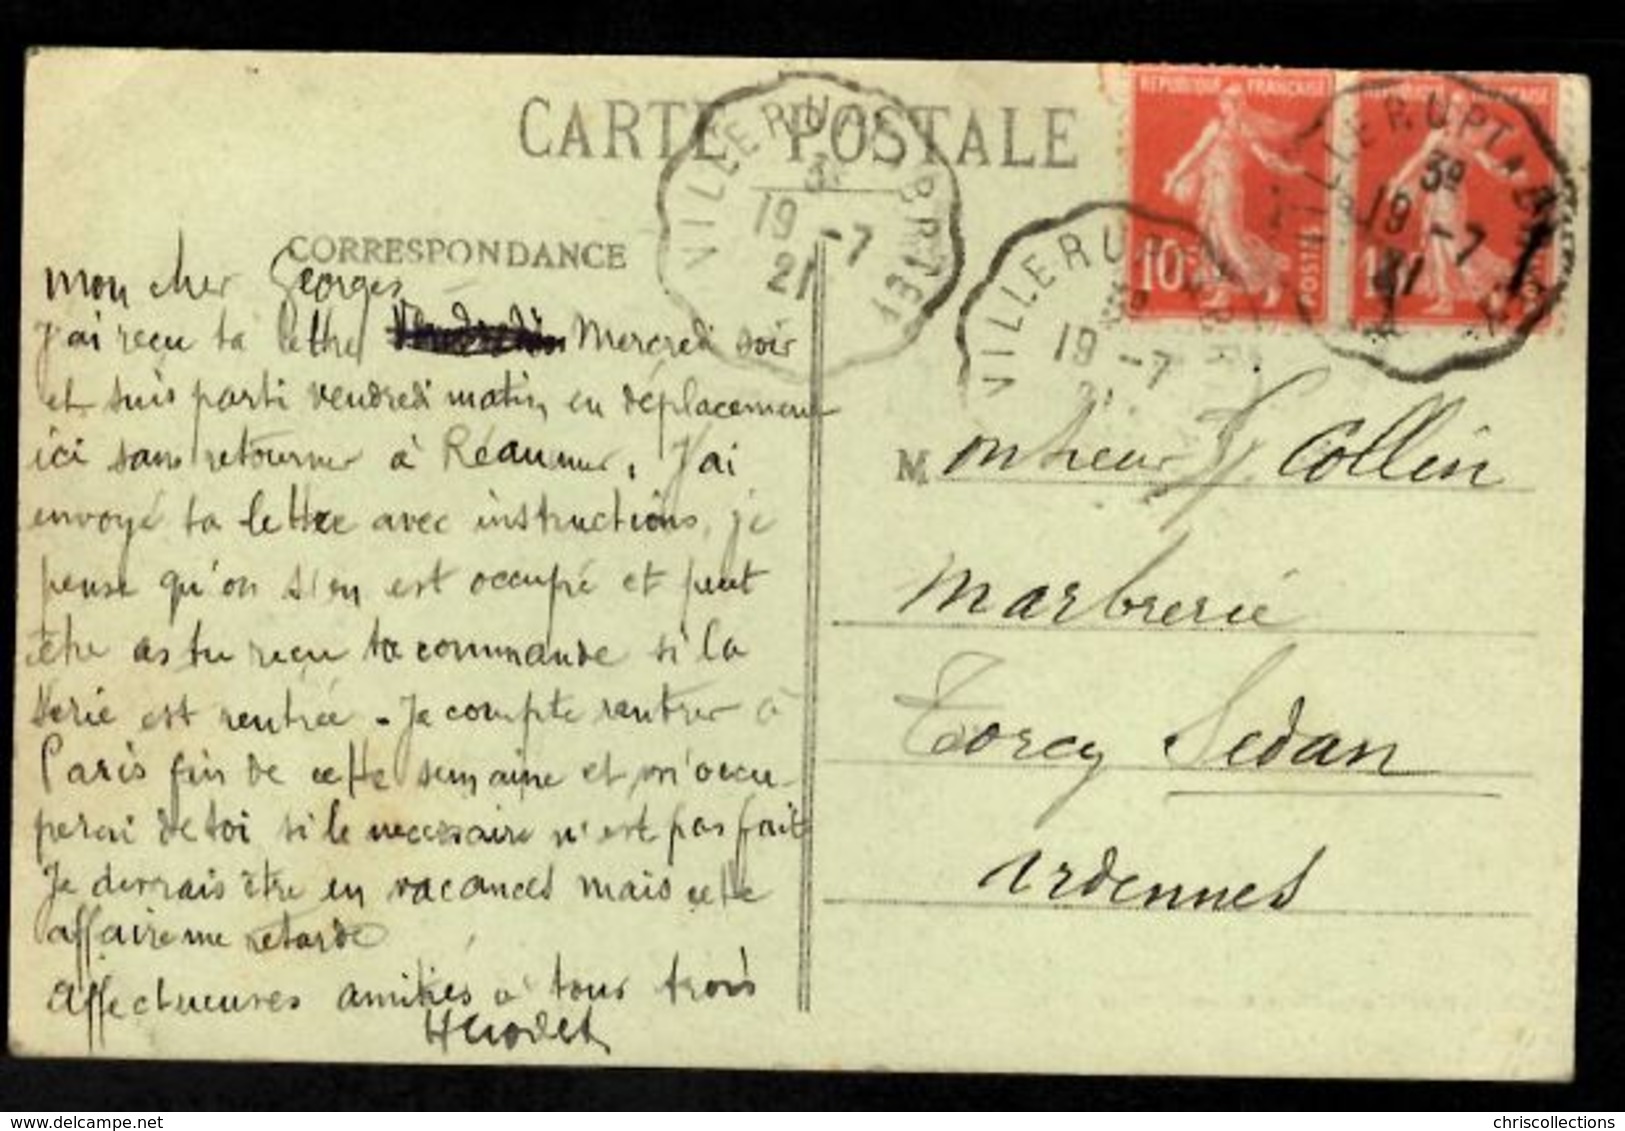 CARTE POSTALE
CORRESPONDANCE
REPUBLIQUE FRANÇAISE
10c
POSTES
VILLERUPT A
3º
19 -7
21
VILLERUPT
19 -7
21
VILLERUPT A
3º
19 -7
21
Mon cher Georges
J'ai reçu ta lettre Mercredi soir
et suis parti vendredi matin en déplacement
ici sans retourner à Réaumur. J'ai
envoyé ta lettre avec instructions, je
pense qu'on s'en est occupé et peut
être as tu reçu ta commande si la
série est rentrée - Je compte rentrer à
Paris fin de cette semaine et m'occu-
perai de toi si le nécessaire n'est pas fait
Je devrais être en vacances mais cette
affaire me retarde
Affectueuses amitiés à tous trois
M onsieur G Collin
Marbrerie
Torcy Sedan
Ardennes
chriscollections